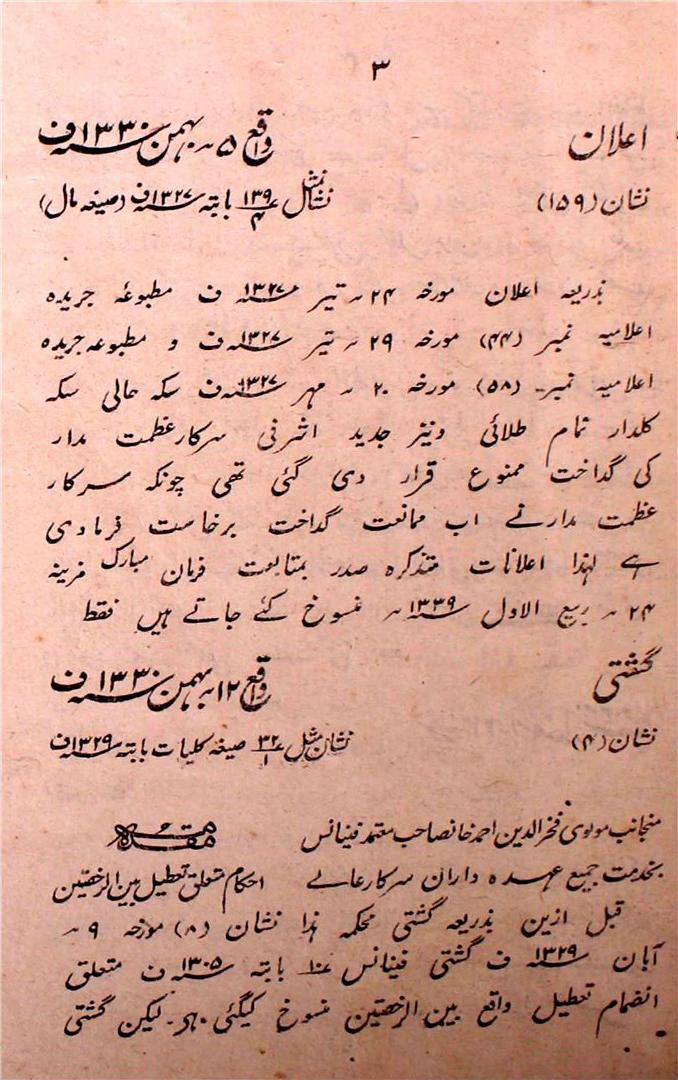 ۳
اعلان واقع ۵؍ بہمن ۱۳۳۰ ف
نشان (۱۵۹) نشان مثل ۱۳۹/۴ بابتہ ۱۳۲۷ ف (صیغہ مال)
بذریعہ اعلان مورخہ ۲۴؍ تیر ۱۳۲۷ ف مطبوعہ جریدہ
اعلامیہ نمبر (۴۴) مورخہ ۲۹؍ تیر ۱۳۲۷ ف و مطبوعہ جریدہ
اعلامیہ نمبر (۵۸) مورخہ ۲۰؍ مہر ۱۳۲۷ ف سکہ حالی سکہ
کلدار تمام طلائی ونیز جدید اشرفی سرکار عظمت مدار
کی گداخت ممنوع قرار دی گئی تھی چونکہ سرکار
عظمت مدار نے اب ممانعت گداخت برخاست فرمادی
ہے لہذا اعلانات متذکرہ صدر بمتابعت فرمان مبارک مزینہ
۲۴؍ ربیع الاول ۱۳۳۹؍ منسوخ کئے جاتے ہیں فقط
گشتی واقع ۱۲؍ بہمن ۱۳۳۰ ف
نشان (۴) نشان مثل ۳۲/۱ صیغہ کلیات بابتہ ۱۳۲۹ ف
منجانب مولوی فخرالدین احمد خانصاحب معتمد فینانس مقدمہ
بخدمت جمیع عہدہ داران سرکار عالی احکام متعلق تعطیل بین الرخصتین
قبل ازین بذریعہ گشتی محکمہ ہذا نشان (۸) مورخہ ۹؍
آبان ۱۳۲۹ ف گشتی فینانس بابتہ ۱۳۰۵ ف متعلق
انضمام تعطیل واقع بین الرخصتین منسوخ کیگئی ہے۔ لیکن گشتی